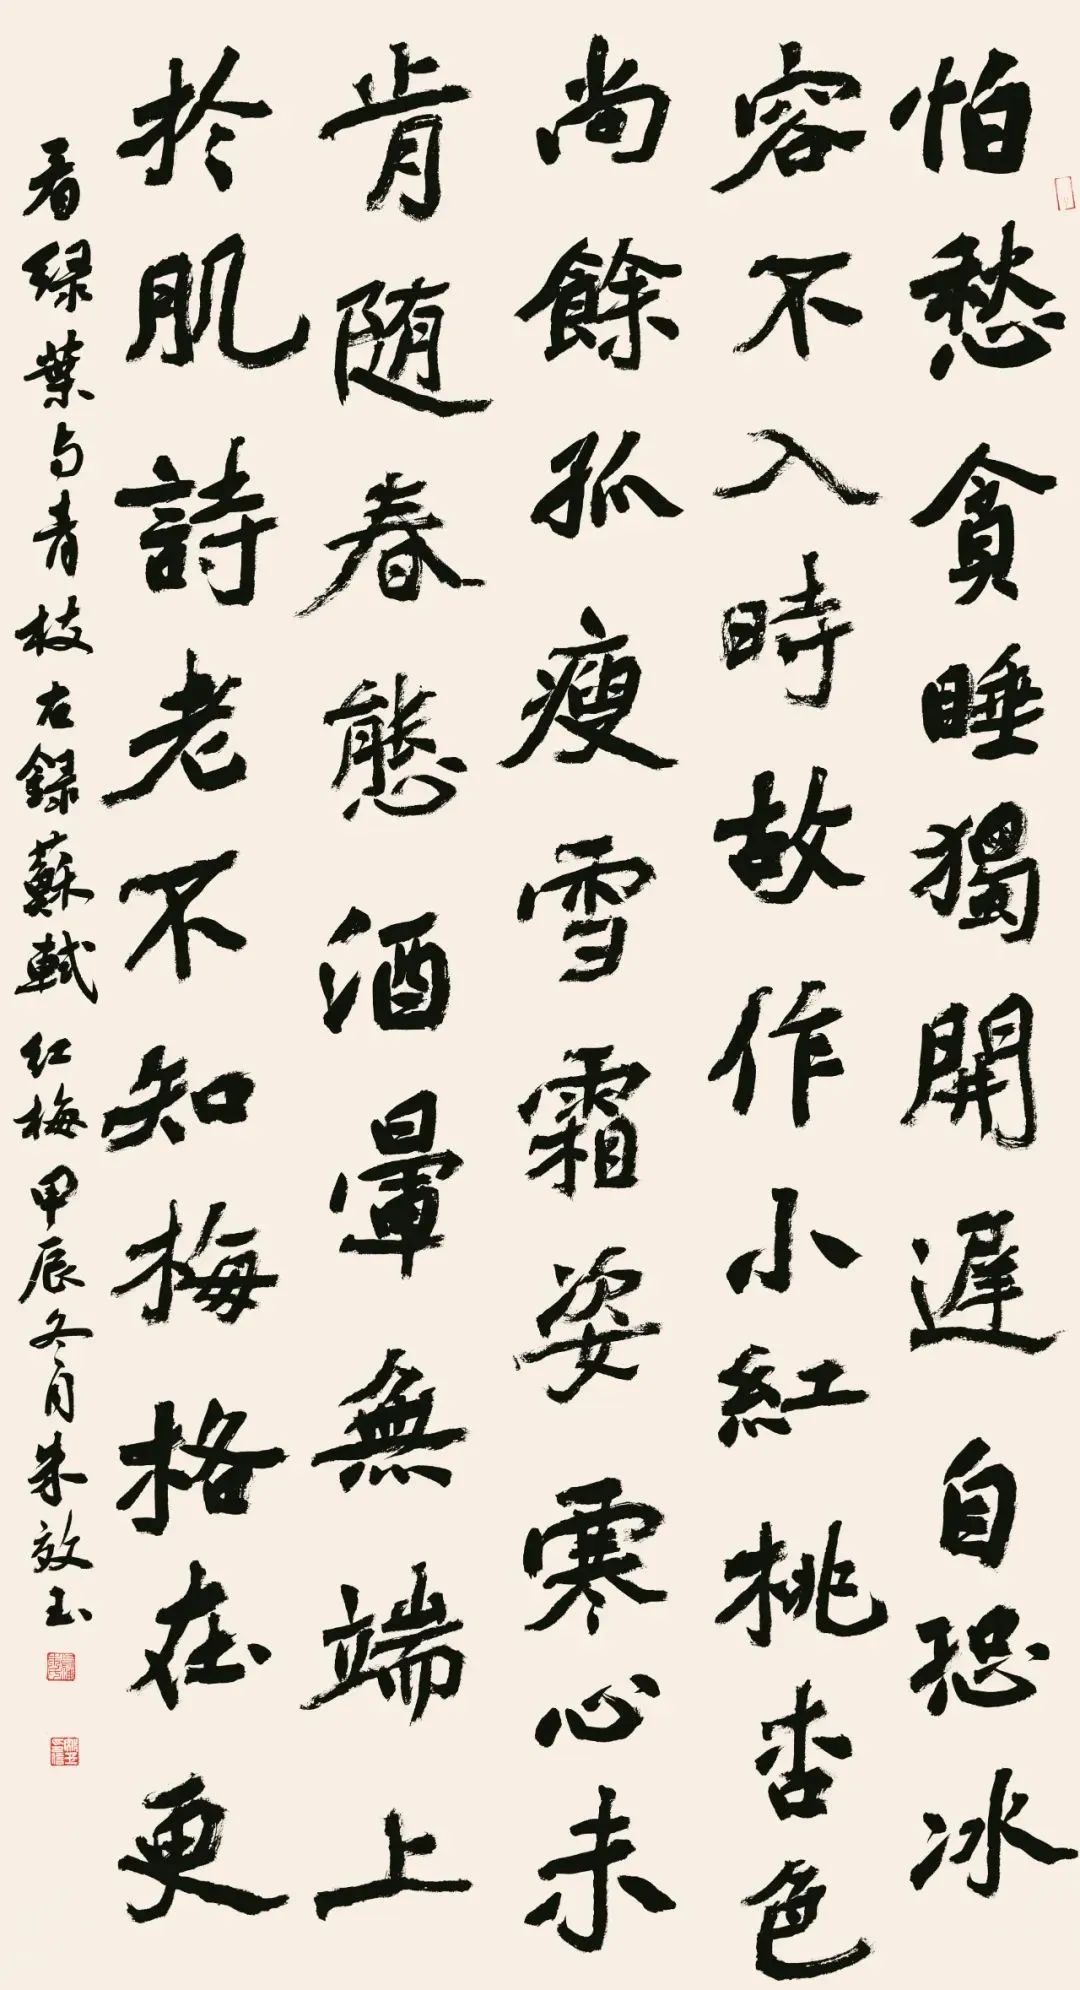 怕愁貪睡獨開遲自恐冰
容不入時故作小紅桃杏色
尚餘孤瘦雪霜姿寒心未
肯随春態酒暈無端上
扵肌詩老不知梅格在更
看緑葉与青枝右録蘇軾红梅甲辰冬月朱效玉